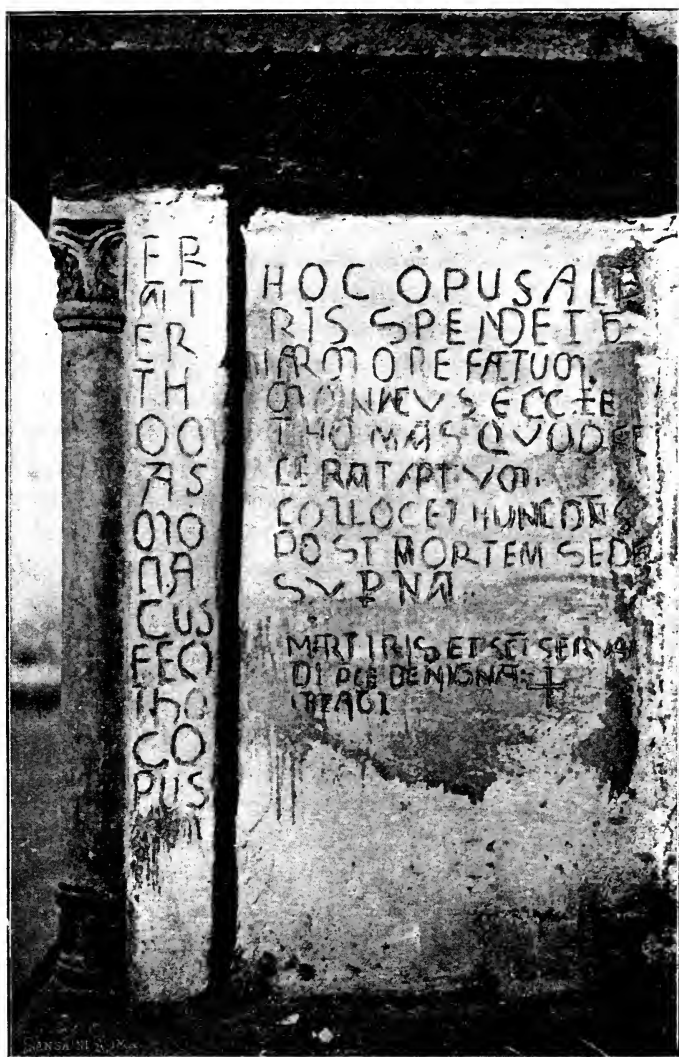 FR
AT
ER
TH
OM
AS
MO
NA
CUS
FEC
IhO
CO
PUS
HOC OPUS ALE
RIS SPENDET E
MARMORE FÆTUM.
MONACVS ECCLE
THOMAS QVOD FE
CERAT APTVM.
COLLOCET HUNC DNS
POST MORTEM SEDE
SVPNA.
MARTIRIS ET SCI SERVA
DI PCE BENIGNA +
SANSAINI ROMA